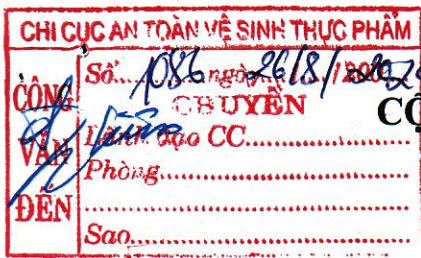 CHI CỤC AN TOÀN VỆ SINH THỰC PHẨM
CÔNG VĂN ĐẾN
Số 1086 ngày 26/8/
CHUYỂN
Lãnh đạo CC
Phòng
Sao
CỘ